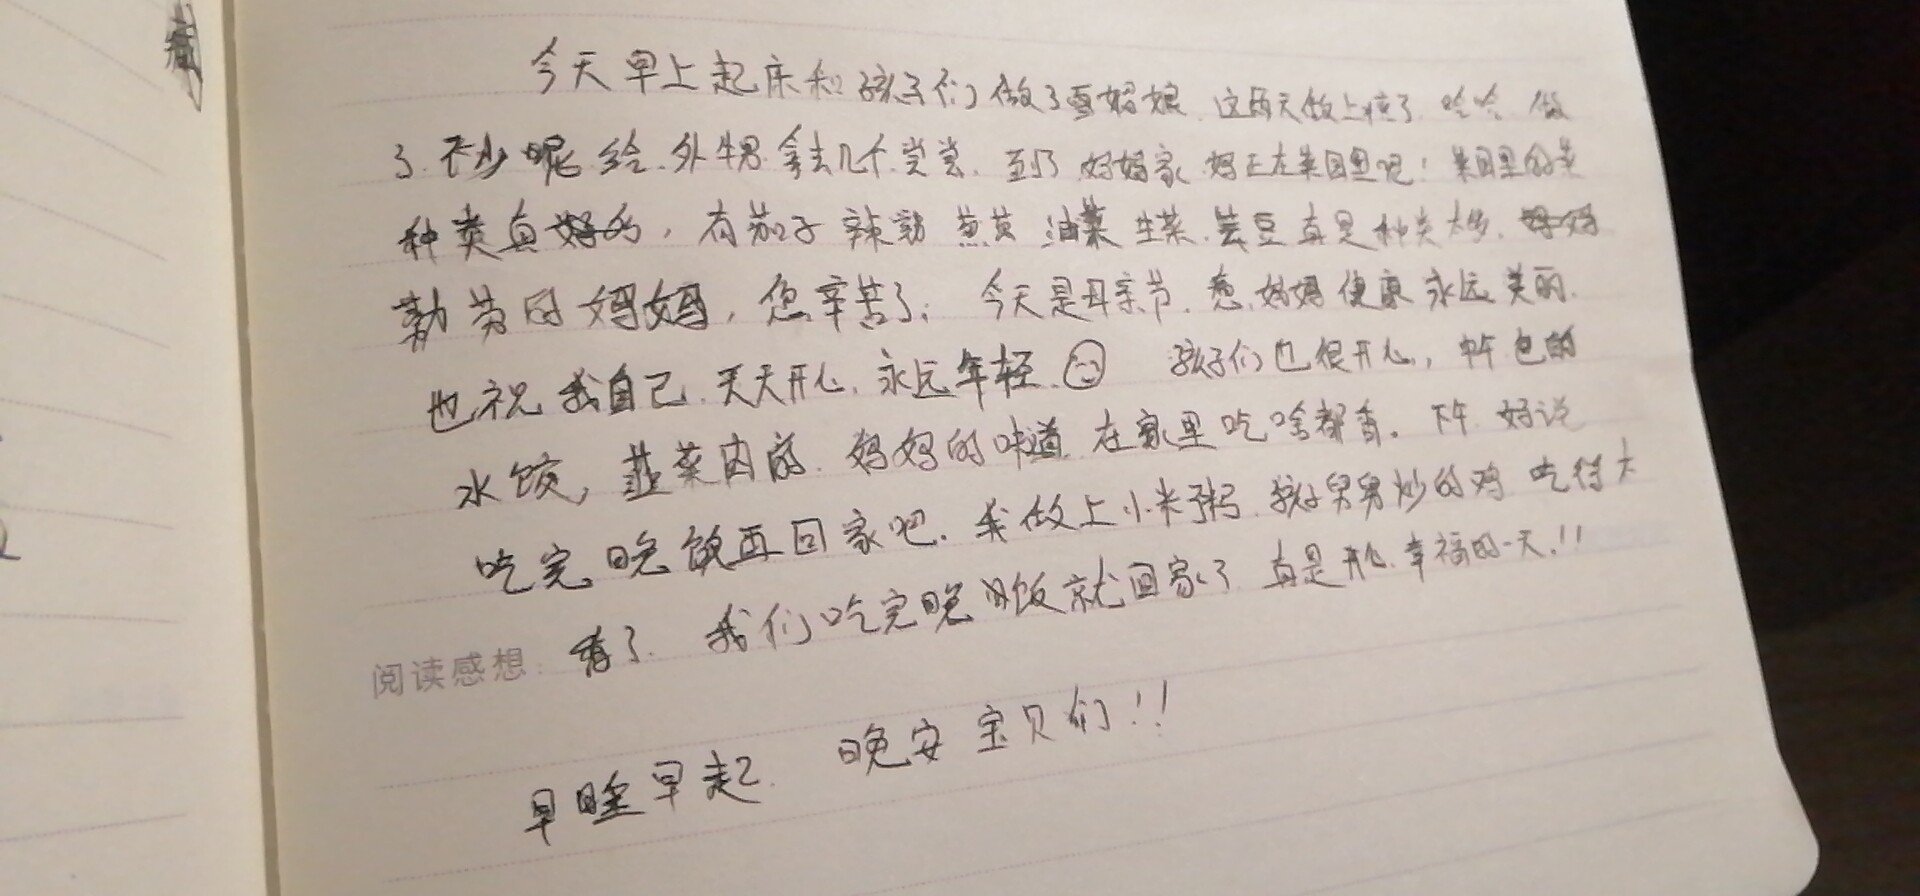 今天早上起床和孩子们做了雪媚娘 这两天做上瘾了 哈哈 做
了不少呢 给外甥拿去几个尝尝 到了妈妈家 妈正在菜园里呢！菜园里的菜
种类真，有茄子 辣 油菜 生菜 芸豆 真是种类太多
勤劳的妈妈，您辛苦了，今天是母亲节，愿妈妈健康永远美丽，
也祝我自己，天天开心，永远年轻 孩子们也很开心，中午包的
水饺，韭菜肉的，妈妈的味道，在家里吃啥都香。下午 妈说
吃完晚饭再回家吧，我做上小米粥，孩子舅舅炒的鸡 吃得太
阅读感想 香了 我们吃完晚饭就回家了 真是开心幸福的一天！！
早睡早起 晚安宝贝们！！